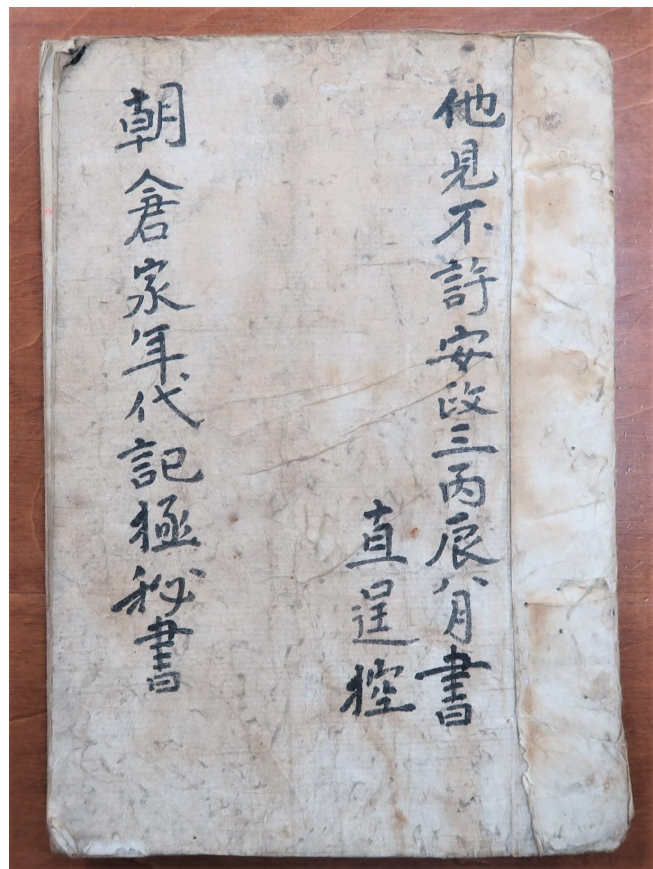 他見不許安政三丙辰八月書
直逞控
朝倉家年代記極秘書